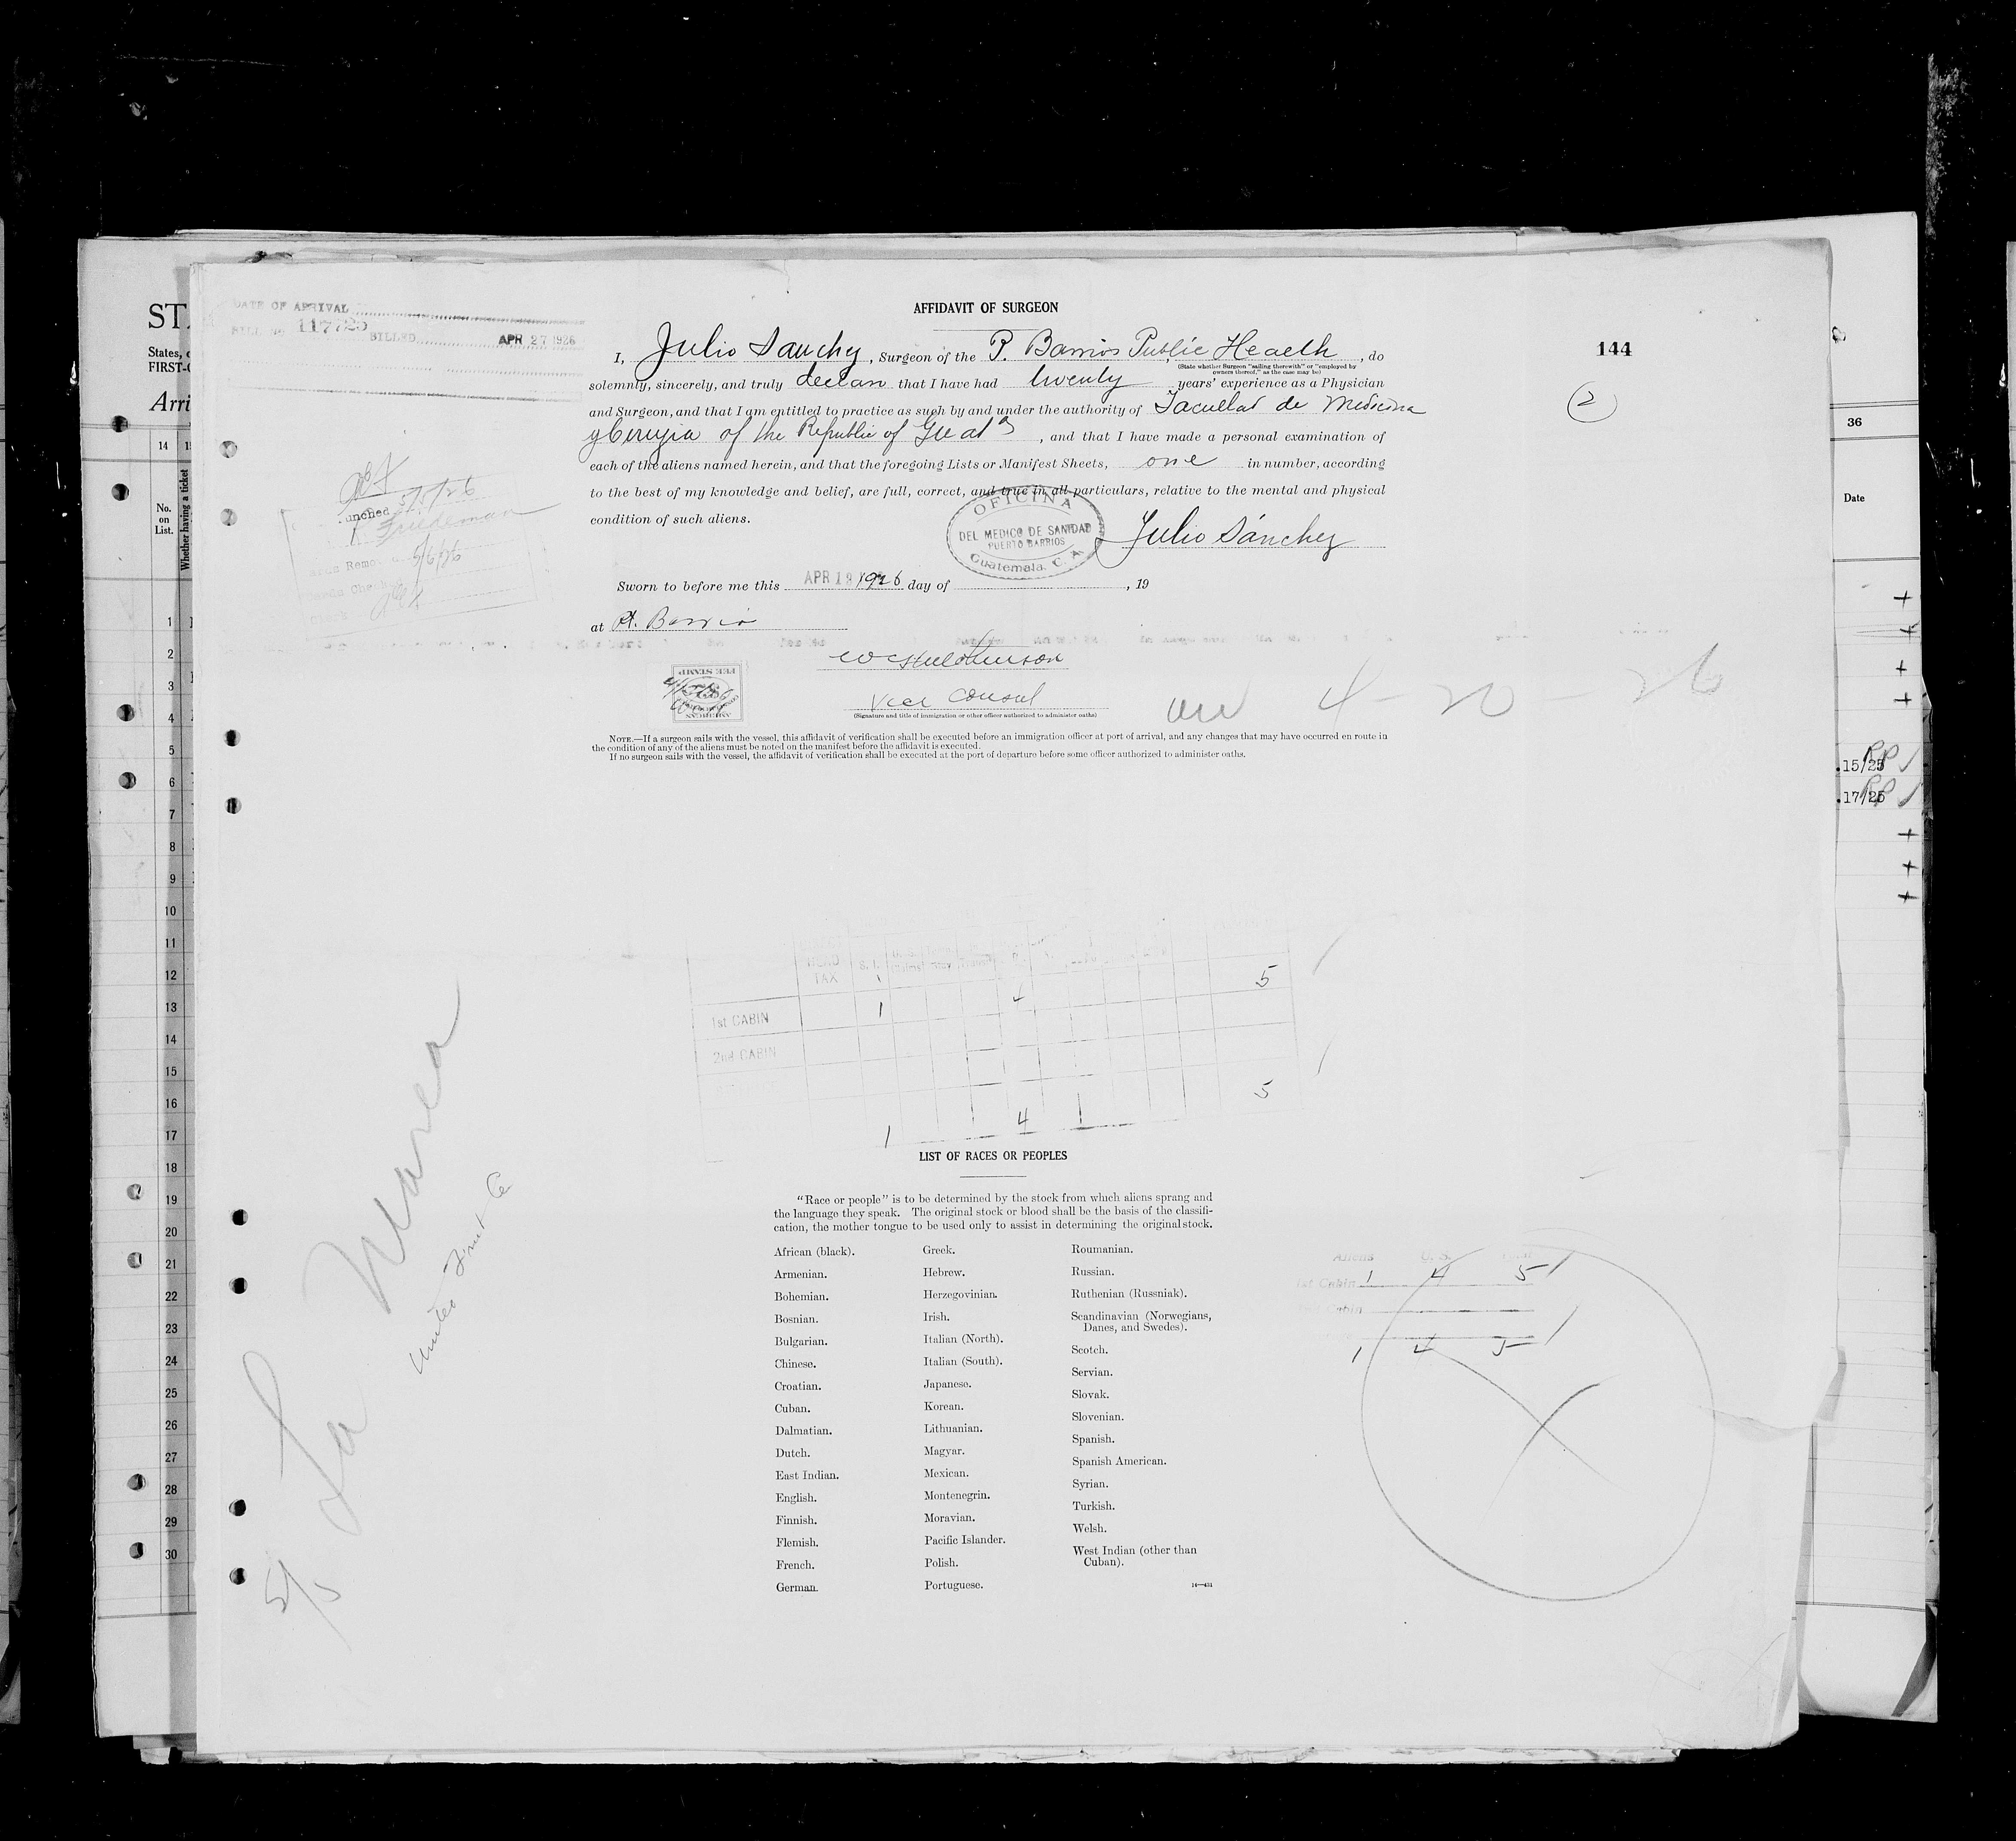 DATE OF ARRIVAL
BILL no 117725 BILLED APR 27 1926
AFFIDAVIT OF SURGEON
144
2
I, Julio Sánchez, Surgeon of the P. Barrios Public Health, do
(State whether Surgeon "sailing therewith" or "employed by
owners thereof," as the case may be)
solemnly, sincerely, and truly declare that I have had twenty years' experience as a Physician
and Surgeon, and that I am entitled to practice as such by and under the authority of Facultad de Medicina
y Cirugia of the Republic of Guata, and that I have made a personal examination of
each of the aliens named herein, and that the foregoing Lists or Manifest Sheets, one in number, according
to the best of my knowledge and belief, are full, correct, and true in all particulars, relative to the mental and physical
condition of such aliens.
OFICINA
DEL MEDICO DE SANIDAD
PUERTO BARRIOS
Guatemala, C. A.
Julio Sánchez
Sworn to before me this APR 19 1926 day of , 19
at Pt. Barrio
W C Hutchinson
Vice Consul
(Signature and title of immigration or other officer authorized to administer oaths)
AMERICAN
FEE STAMP
4-20-26
NOTE.—If a surgeon sails with the vessel, this affidavit of verification shall be executed before an immigration officer at port of arrival, and any changes that may have occurred en route in
the condition of any of the aliens must be noted on the manifest before the affidavit is executed.
If no surgeon sails with the vessel, the affidavit of verification shall be executed at the port of departure before some officer authorized to administer oaths.
unched 5/5/26
5/6/26
HEAD
TAX S. I.
5
1st CABIN 1 4
2nd CABIN
5
1 4 1
LIST OF RACES OR PEOPLES
"Race or people" is to be determined by the stock from which aliens sprang and
the language they speak. The original stock or blood shall be the basis of the classifi-
cation, the mother tongue to be used only to assist in determining the original stock.
African (black).
Armenian.
Bohemian.
Bosnian.
Bulgarian.
Chinese.
Croatian.
Cuban.
Dalmatian.
Dutch.
East Indian.
English.
Finnish.
Flemish.
French.
German.
Greek.
Hebrew.
Herzegovinian.
Irish.
Italian (North).
Italian (South).
Japanese.
Korean.
Lithuanian.
Magyar.
Mexican.
Montenegrin.
Moravian.
Pacific Islander.
Polish.
Portuguese.
Roumanian.
Russian.
Ruthenian (Russniak).
Scandinavian (Norwegians,
Danes, and Swedes).
Scotch.
Servian.
Slovak.
Slovenian.
Spanish.
Spanish American.
Syrian.
Turkish.
Welsh.
West Indian (other than
Cuban).
Aliens U. S.
1st Cabin 1 4 5
Cabin
1 4 5
S/S La Marea
United Fruit Co
ST
States,
FIRST-C
Arri
14
No.
on
List.
Whether having a ticket
1
2
3
4
5
6
7
8
9
10
11
12
13
14
15
16
17
18
19
20
21
22
23
24
25
26
27
28
29
30
36
Date
15/25 RP
17/25 RP